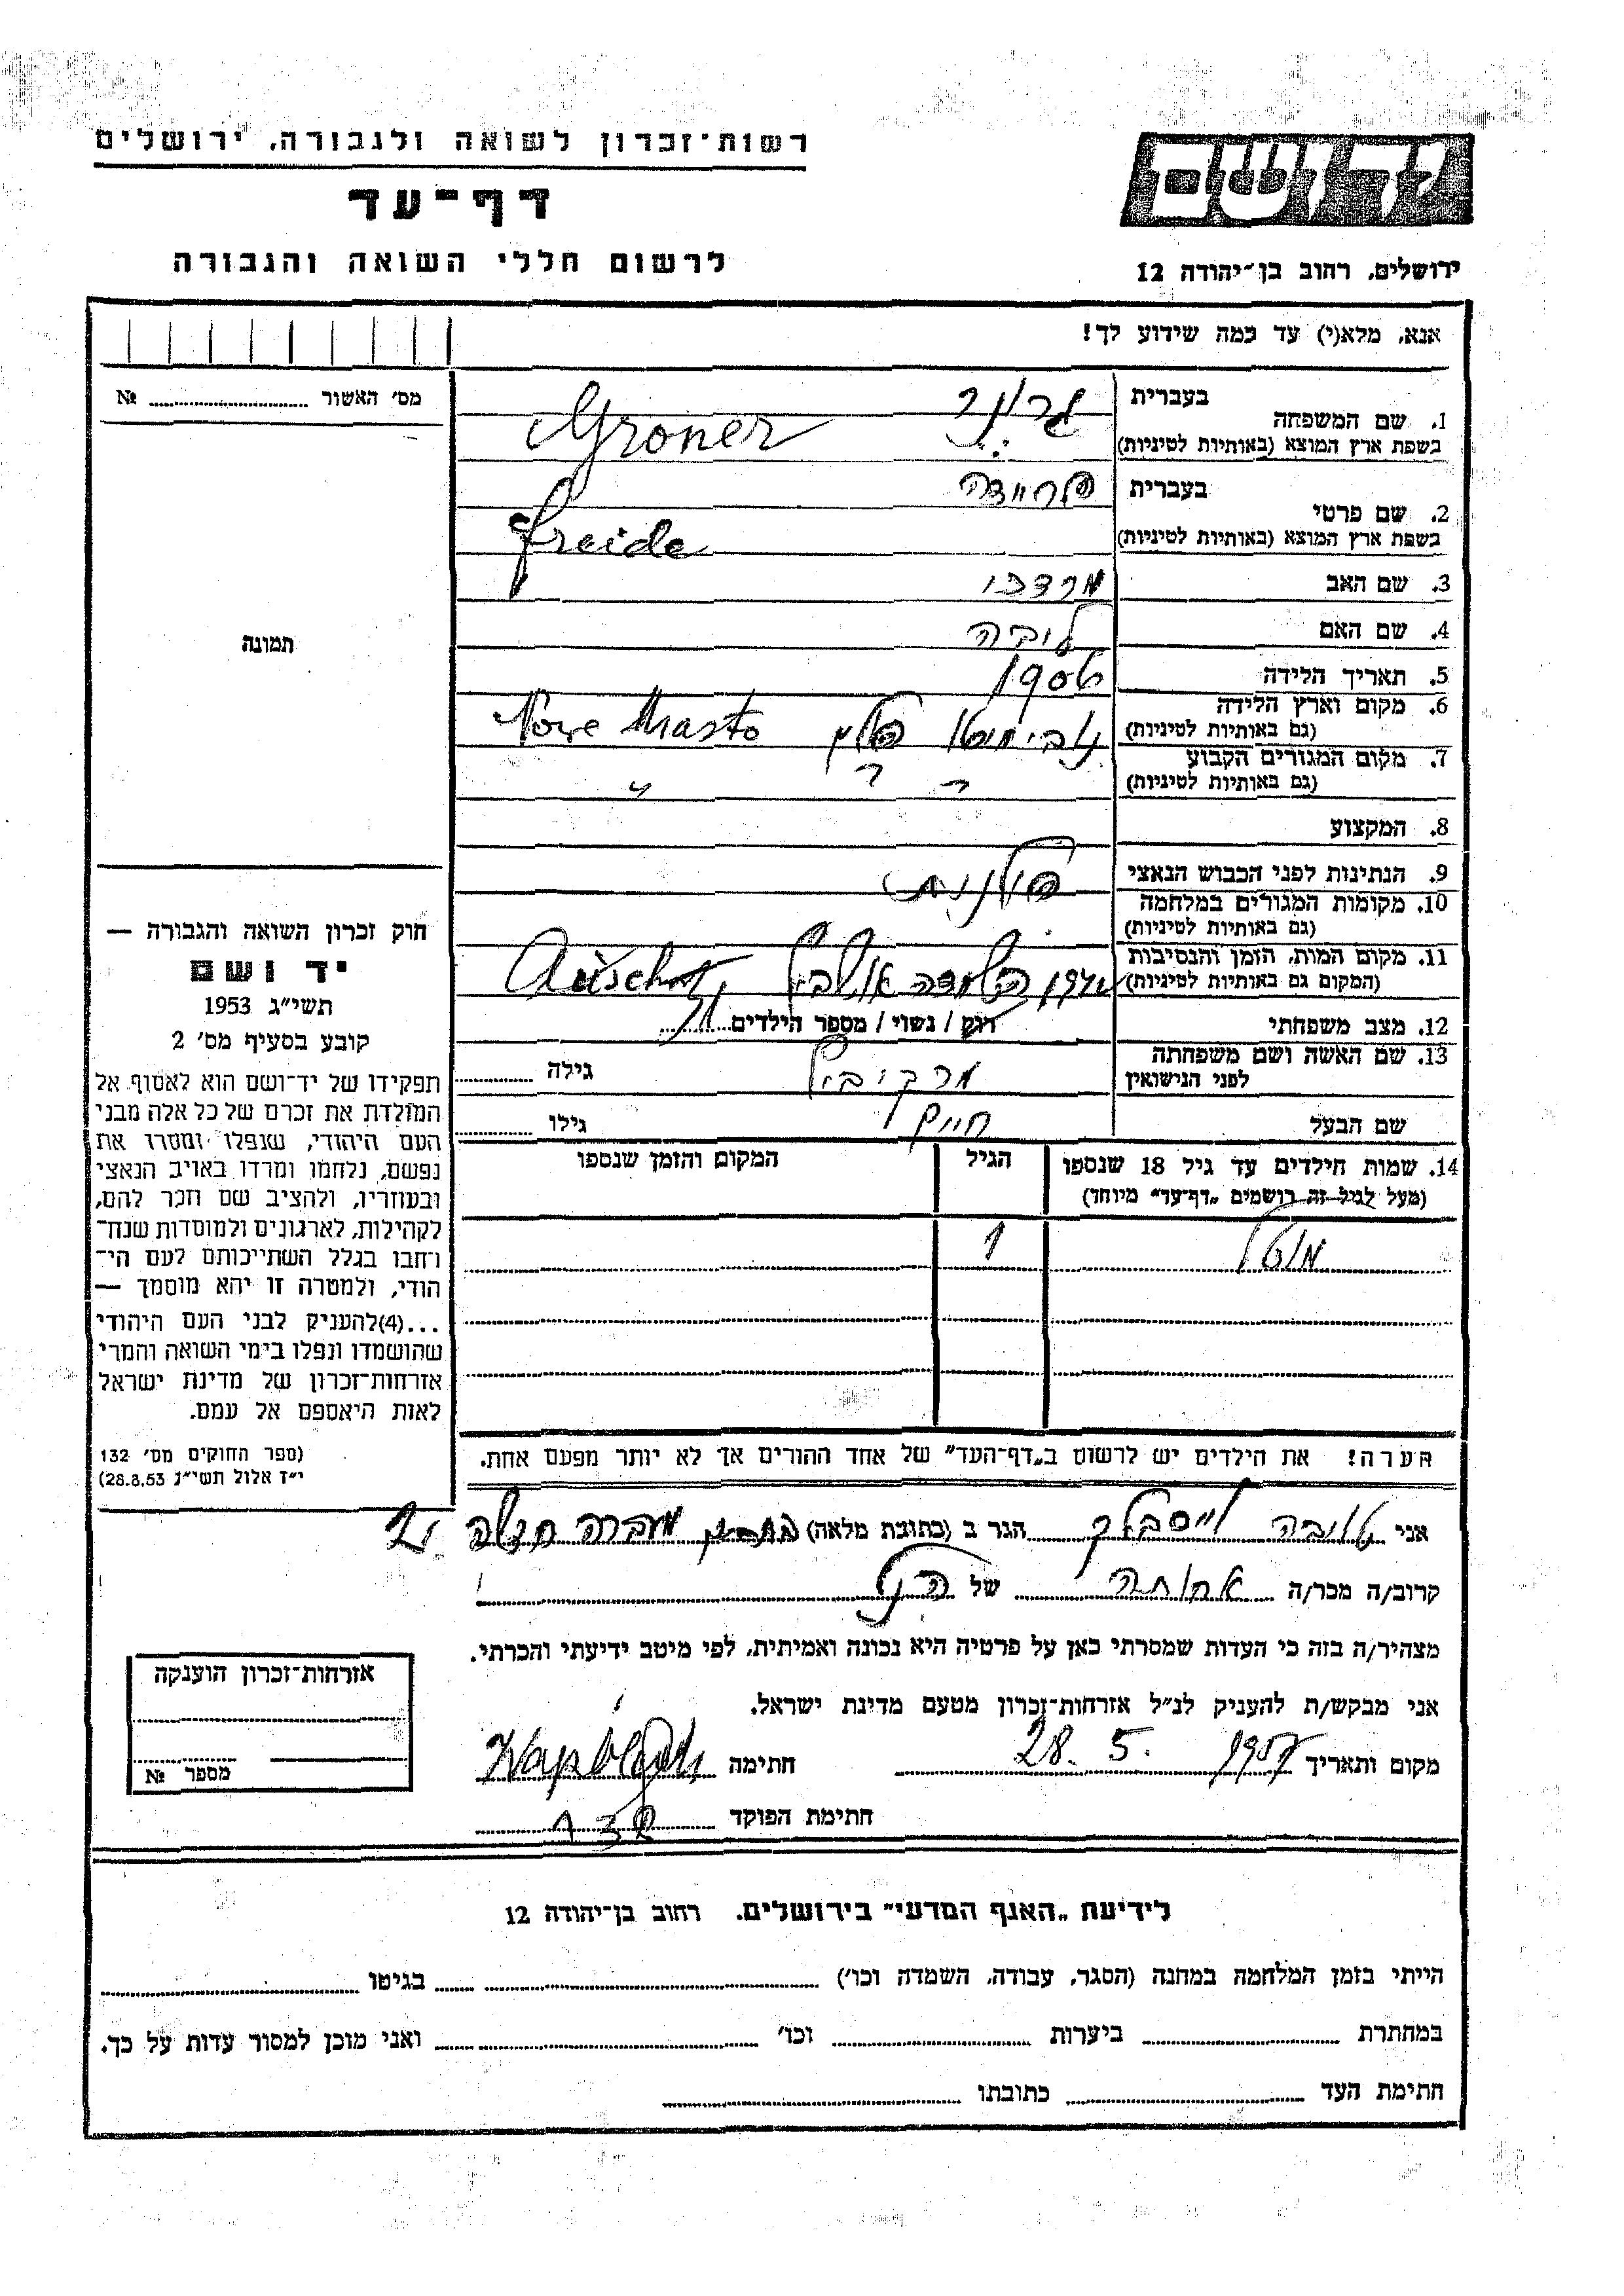 רשות־זכרון לשואה ולגבורה, ירושלים
דף־עד
לרשום חללי השואה והגבורה
ידושם
ירושלים, רחוב בן־יהודה 12
אנא, מלא(י) עד כמה שידוע לך!
מס׳ האשור № 
תמונה
חוק זכרון השואה והגבורה —
יד ושם
תשי״ג 1953
קובע בסעיף מס׳ 2
תפקידו של יד־ושם הוא לאסוף אל
המולדת את זכרם של כל אלה מבני
העם היהודי, שנפלו ומסרו את
נפשם, נלחמו ומרדו באויב הנאצי
ובעוזריו, ולהציב שם וזכר להם,
לקהילות, לארגונים ולמוסדות שנח־
רחבו בגלל השתייכותם לעם הי־
הודי, ולמטרה זו יהא מוסמך —
...(4)להעניק לבני העם היהודי
שהושמדו ונפלו בימי השואה והמרי
אזרחות־זכרון של מדינת ישראל
לאות היאספם אל עמם.
(ספר החוקים מס׳ 132
י״ז אלול תשי״ג 28.8.53)
1. שם המשפחה
בעברית גרונר
בשפת ארץ המוצא (באותיות לטיניות) Groner
2. שם פרטי
בעברית פריידה
בשפת ארץ המוצא (באותיות לטיניות) freide
3. שם האב מרדכי
4. שם האם
5. תאריך הלידה 1906
6. מקום וארץ הלידה
(גם באותיות לטיניות) פולין Nove Miasto
7. מקום המגורים הקבוע
(גם באותיות לטיניות) " " "
8. המקצוע
9. הנתינות לפני הכבוש הנאצי פולנית
10. מקומות המגורים במלחמה
(גם באותיות לטיניות)
11. מקום המות, הזמן והנסיבות
(המקום גם באותיות לטיניות) השמדה
12. מצב משפחתי רווק / נשוי / מספר הילדים
13. שם האשה ושם משפחתה
לפני הנישואין מרקוביץ גילה
שם הבעל חיים גילו
14. שמות הילדים עד גיל 18 שנספו הגיל המקום והזמן שנספו
(מעל לגיל זה רושמים „דף־עד״ מיוחד)
מוטל 1
הערה! את הילדים יש לרשום ב„דף־העד״ של אחד ההורים אך לא יותר מפעם אחת.
אני טובה וייסבלך הגר ב (כתובת מלאה) מעברה
קרוב/ה מכר/ה אחותה של הנ״ל
מצהיר/ה בזה כי העדות שמסרתי כאן על פרטיה היא נכונה ואמיתית, לפי מיטב ידיעתי והכרתי.
אני מבקש/ת להעניק לנ״ל אזרחות־זכרון מטעם מדינת ישראל.
מקום ותאריך 28. 5. 1957 חתימה
חתימת הפוקד 132
אזרחות־זכרון הוענקה
מספר №
לידיעת „האגף המדעי״ בירושלים, רחוב בן־יהודה 12
הייתי בזמן המלחמה במחנה (הסגר, עבודה, השמדה וכו׳) בגיטו
במחתרת ביערות וכו׳ ואני מוכן למסור עדות על כך.
חתימת העד כתובתו